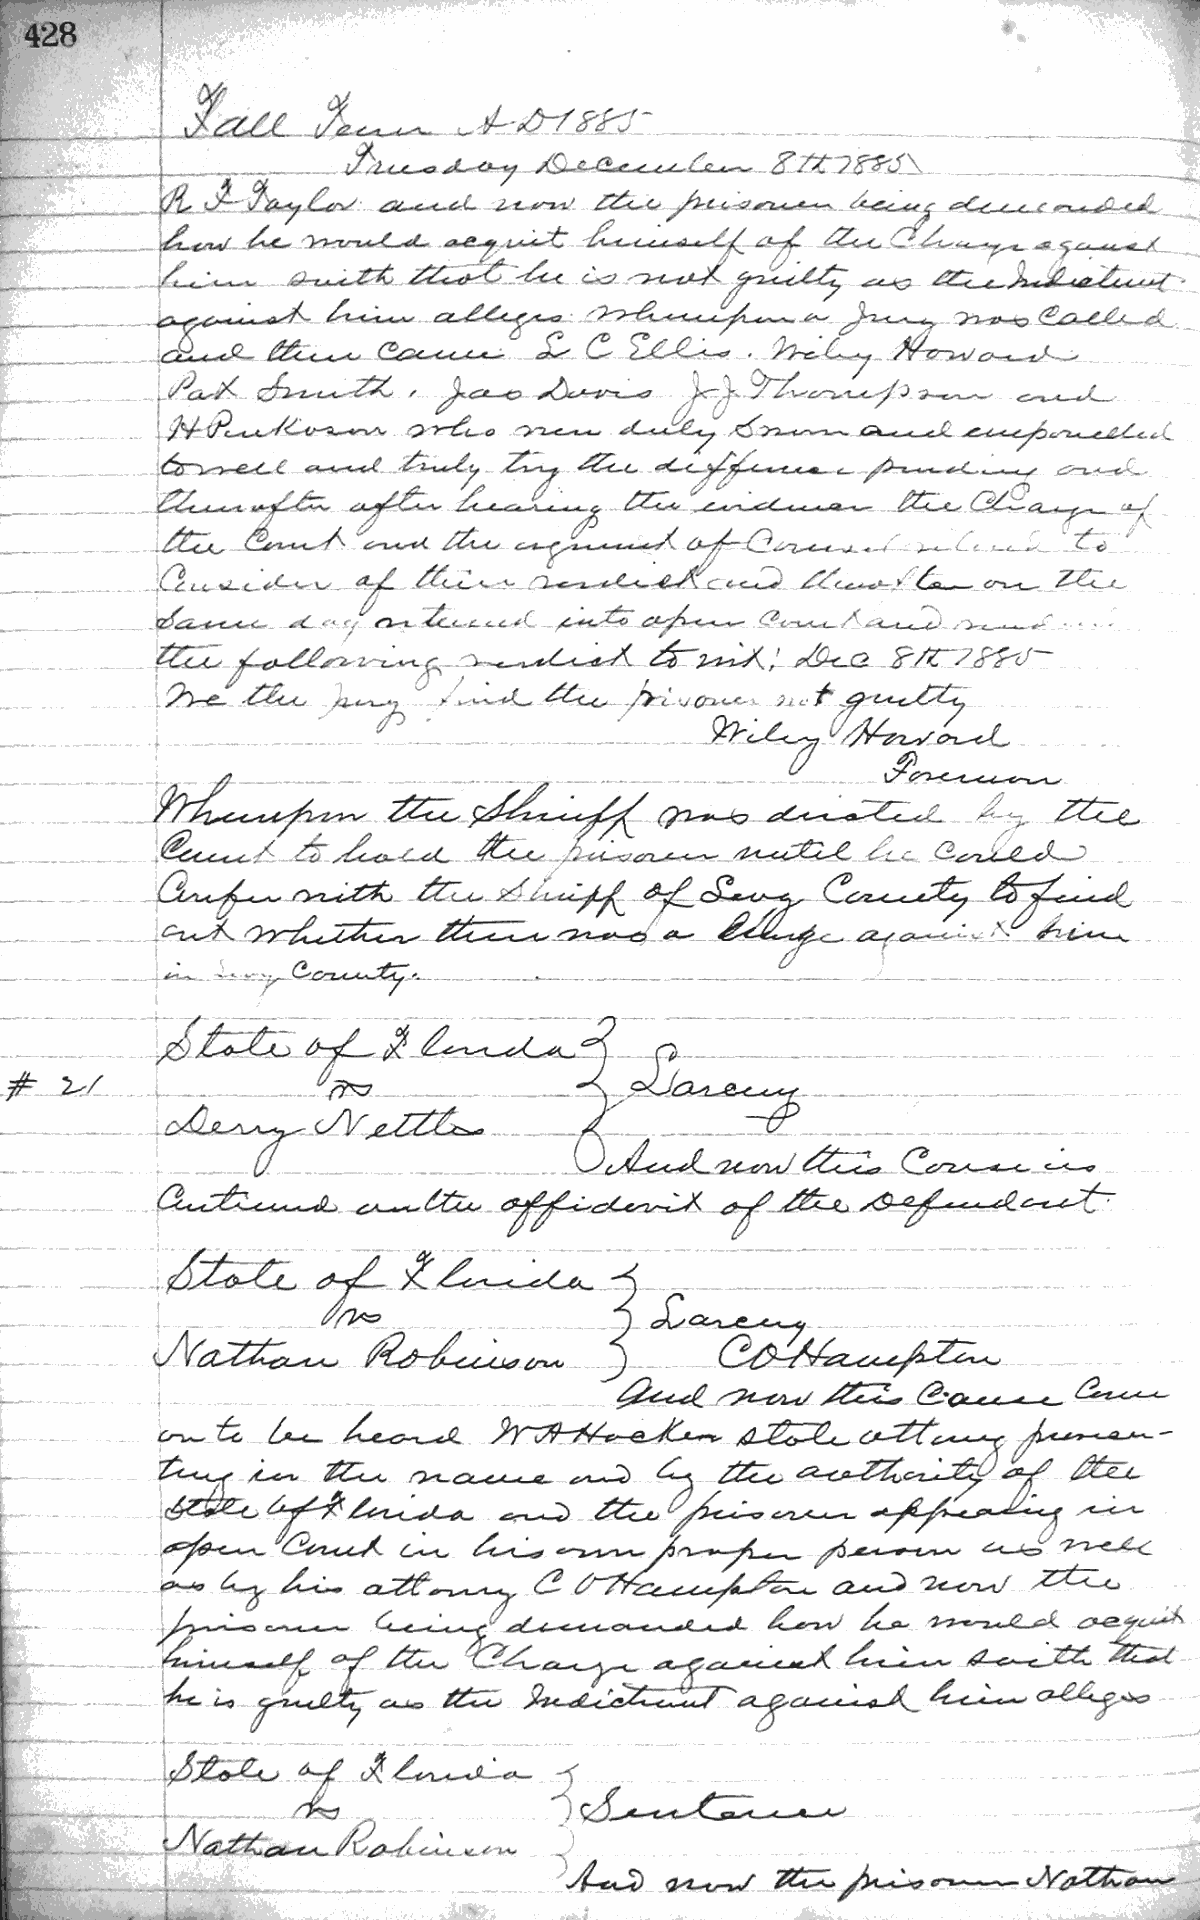 428
Fall Term A-D 1885
Tuesday December 8th 1885
R F Taylor and now the prisoner being demanded
how he would acquit himself of the Charge against
him saith that he is not guilty as the Indictment
against him alleges Whereupon a Jury was Called
and then Came L C Ellis. Wiley Howard
Pat Smith, Jas Davis J J Thompson and
H Pinkoson who were duly Sworn and empanelled
to well and truly try the difference pending and
thereafter after hearing the evidence the Charge of
the Court and the argument of Counsel retired to
Consider of their verdict and thereafter on the
Same day returned into open Court and
the following verdict to wit: Dec 8th 1885
We the jury find the prisoner not guilty
Wiley Howard
Foreman
Whereupon the Sheriff was directed by the
Court to hold the prisoner until he Could
Confer with the Sheriff of Levy County to find
out whether there was a Charge against him
in Levy County.
State of Florida
# 21 vs Larceny
Derry Nettles
And now this Cause is
Continued on the affidavit of the Defendant.
State of Florida
vs Larceny
Nathan Robinson C O Hampton
And now this Cause Come
on to be heard W A Hocker State attorney prosecu-
ting in the name and by the authority of the
State of Florida and the prisoner appearing in
open Court in his own proper person as well
as by his attorney C O Hampton and now the
prisoner being demanded how he would acquit
himself of the Charge against him saith that
he is guilty as the Indictment against him alleges
State of Florida
vs Sentence
Nathan Robinson
And now the prisoner Nathan